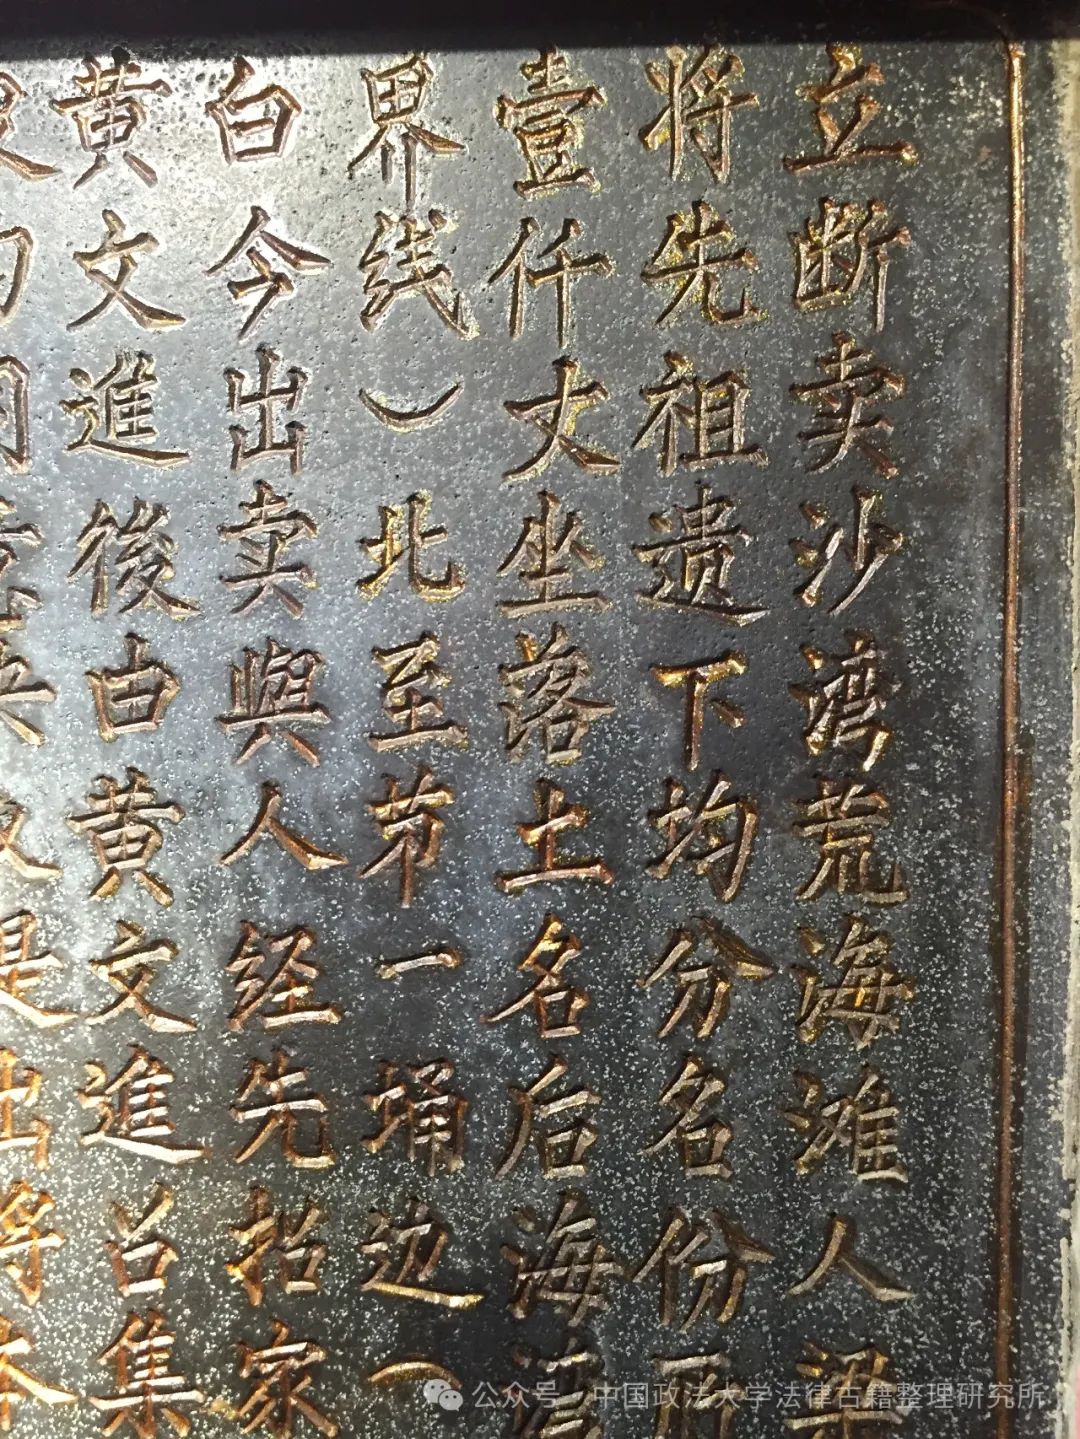 立断卖沙湾荒海滩人梁
将先祖遗下均分名份
壹仟丈坐落土名后海湾
界线）北至芇一埇边（
白今出卖與人经先招家
黄文進後由黄文進召集
公众号·中国政法大学法律古籍整理研究所